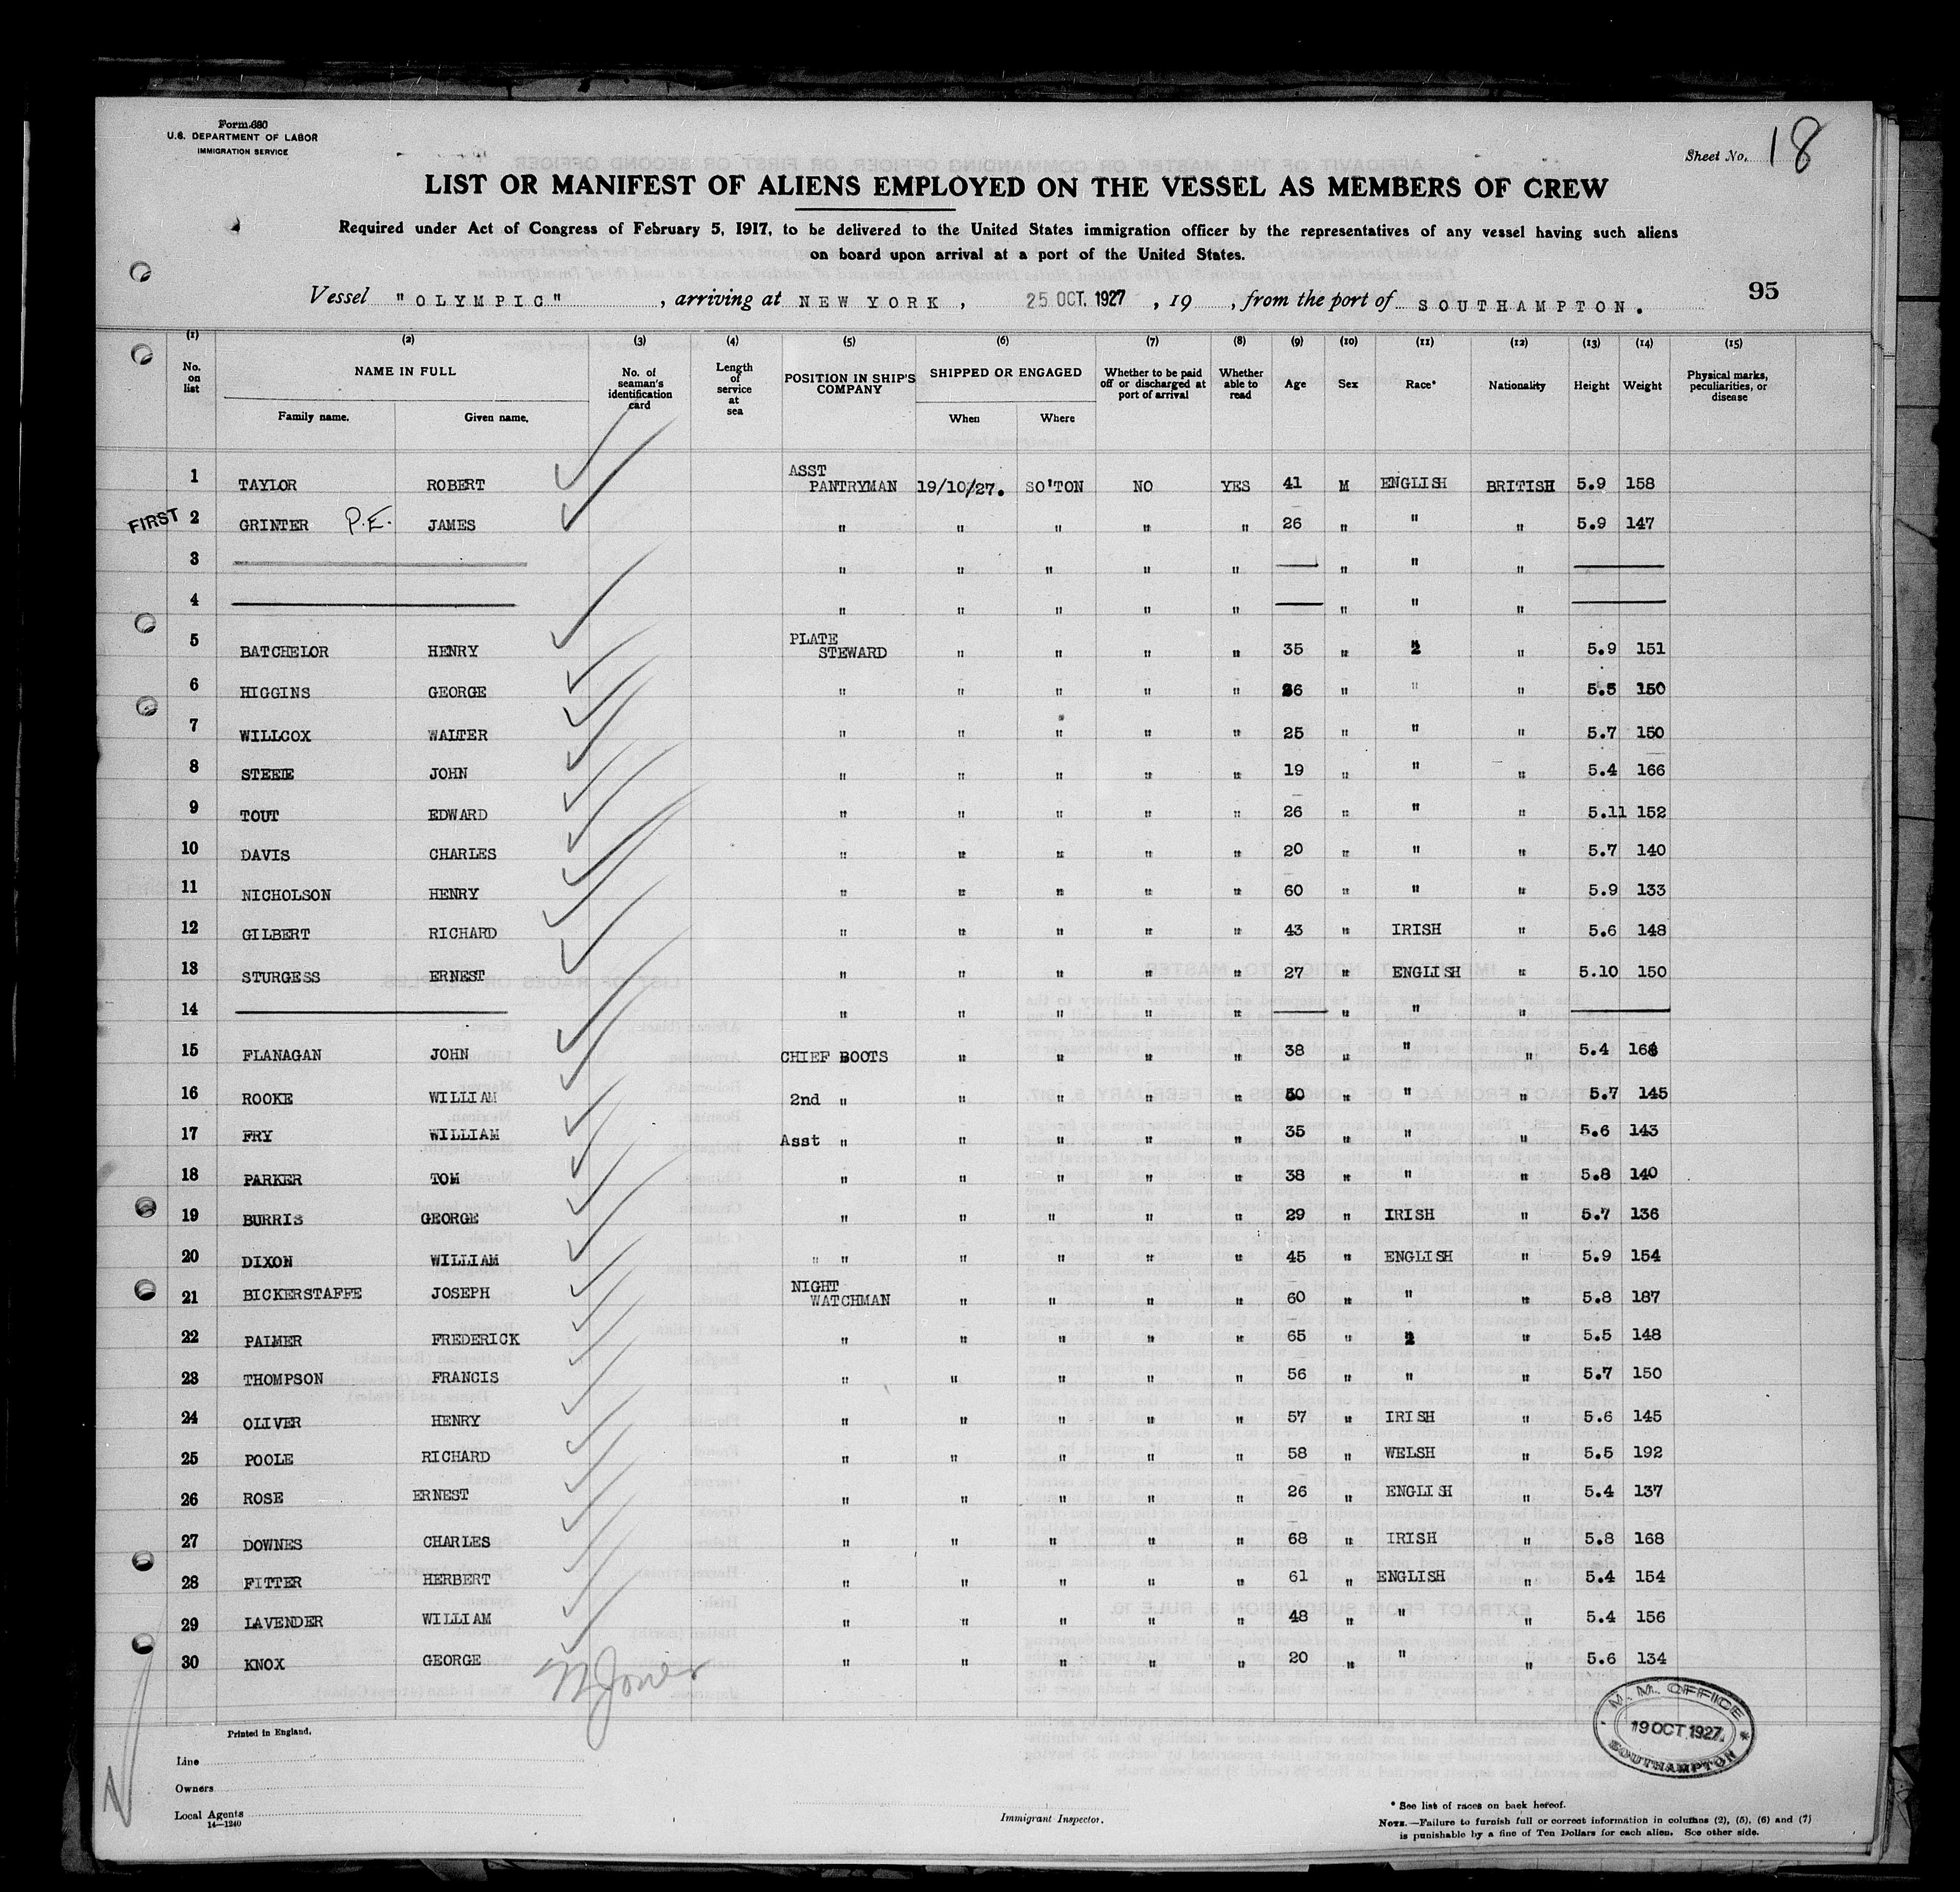 Form 680
U.S. DEPARTMENT OF LABOR
IMMIGRATION SERVICE
Sheet No. 18
LIST OR MANIFEST OF ALIENS EMPLOYED ON THE VESSEL AS MEMBERS OF CREW
Required under Act of Congress of February 5, 1917, to be delivered to the United States immigration officer by the representatives of any vessel having such aliens
on board upon arrival at a port of the United States.
Vessel "OLYMPIC" , arriving at NEW YORK, 25 OCT. 1927 , 19 , from the port of SOUTHAMPTON. 95
(1) (2) (3) (4) (5) (6) (7) (8) (9) (10) (11) (12) (13) (14) (15)
No. on list NAME IN FULL Family name. Given name. No. of seaman's identification card Length of service at sea POSITION IN SHIP'S COMPANY SHIPPED OR ENGAGED When Where Whether to be paid off or discharged at port of arrival Whether able to read Age Sex Race* Nationality Height Weight Physical marks, peculiarities, or disease
1 TAYLOR ROBERT ASST PANTRYMAN 19/10/27. SO'TON NO YES 41 M ENGLISH BRITISH 5.9 158
FIRST 2 GRINTER P.E. JAMES " " " " " 26 " " " 5.9 147
3 " " " " " " " "
4 " " " " " " " "
5 BATCHELOR HENRY PLATE STEWARD " " " " 35 " " " 5.9 151
6 HIGGINS GEORGE " " " " " 36 " " " 5.5 150
7 WILLCOX WALTER " " " " " 25 " " " 5.7 150
8 STEELE JOHN " " " " " 19 " " " 5.4 166
9 TOUT EDWARD " " " " " 26 " " " 5.11 152
10 DAVIS CHARLES " " " " " 20 " " " 5.7 140
11 NICHOLSON HENRY " " " " " 60 " " " 5.9 133
12 GILBERT RICHARD " " " " " 43 " IRISH " 5.6 148
13 STURGESS ERNEST " " " " " 27 " ENGLISH " 5.10 150
14 " " " " " " " "
15 FLANAGAN JOHN CHIEF BOOTS " " " " 38 " " " 5.4 168
16 ROOKE WILLIAM 2nd " " " " " 50 " " " 5.7 145
17 FRY WILLIAM Asst " " " " " 35 " " " 5.6 143
18 PARKER TOM " " " " " 38 " " " 5.8 140
19 BURRIS GEORGE " " " " " 29 " IRISH " 5.7 136
20 DIXON WILLIAM " " " " " " 45 " ENGLISH " 5.9 154
21 BICKERSTAFFE JOSEPH NIGHT WATCHMAN " " " " 60 " " " 5.8 187
22 PALMER FREDERICK " " " " " 65 " " " 5.5 148
23 THOMPSON FRANCIS " " " " " 56 " " " 5.7 150
24 OLIVER HENRY " " " " " 57 " IRISH " 5.6 145
25 POOLE RICHARD " " " " " 58 " WELSH " 5.5 192
26 ROSE ERNEST " " " " " 26 " ENGLISH " 5.4 137
27 DOWNES CHARLES " " " " " 68 " IRISH " 5.8 168
28 FITTER HERBERT " " " " " 61 " ENGLISH " 5.4 154
29 LAVENDER WILLIAM " " " " " 48 " " " 5.4 156
30 KNOX GEORGE " " " " " 20 " " " 5.6 134
M. M. OFFICE
19 OCT 1927
SOUTHAMPTON
Printed in England.
Line
Owners
Local Agents
14—1240
Immigrant Inspector.
* See list of races on back hereof.
NOTE.—Failure to furnish full or correct information in columns (2), (5), (6) and (7)
is punishable by a fine of Ten Dollars for each alien. See other side.